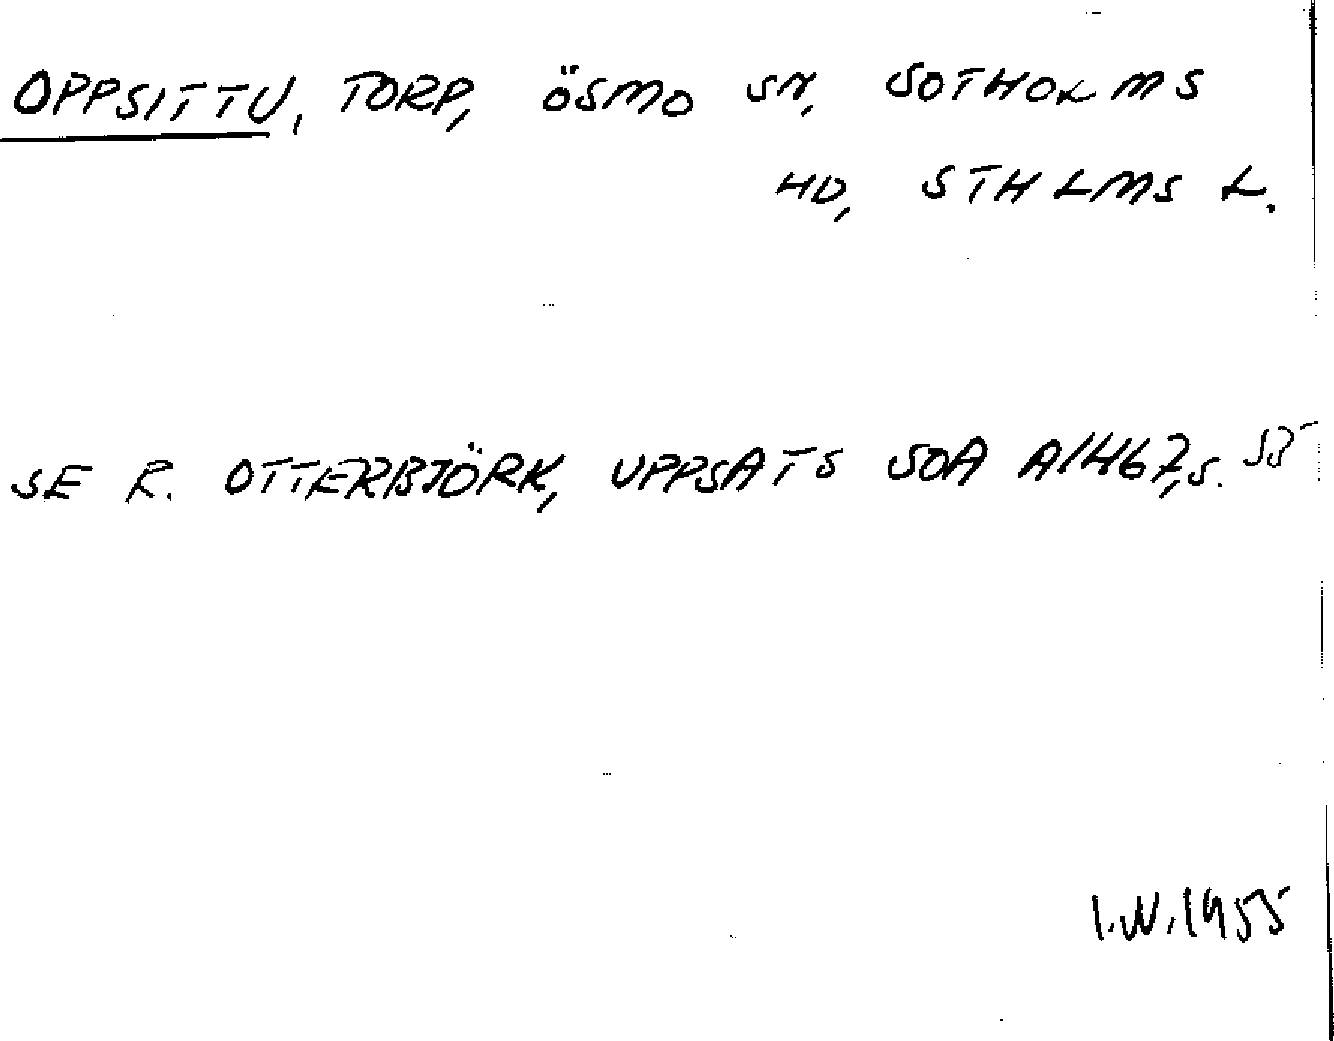 OPPSITTU, TORP, ÖSMO SN, SOTHOLMS
HD, STHLMS L.
SE R. OTTERBJÖRK, UPPSATS SOA A1467, S.
I.W. 1955